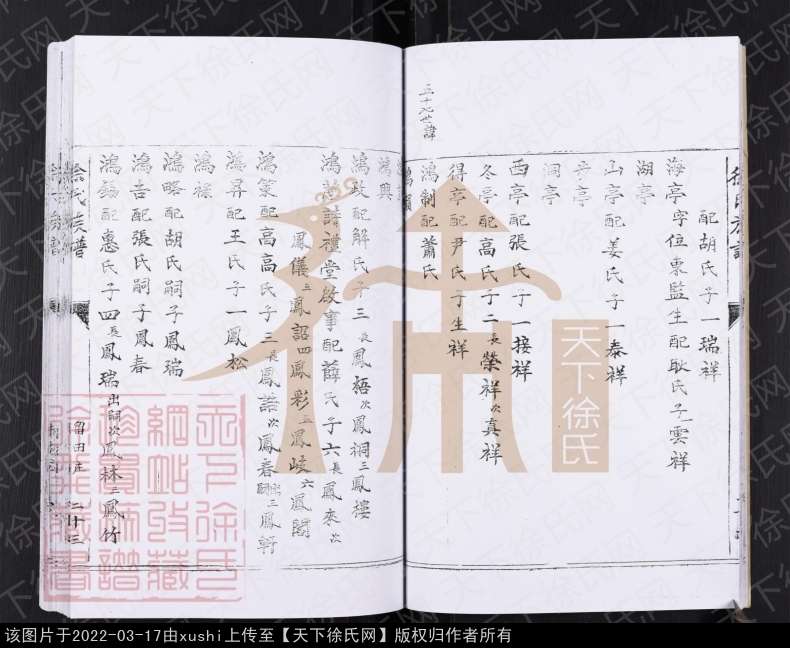 徐氏族譜
配胡氏子一瑞祥
海亭字位東監生配耿氏子雲祥
湖亭
山亭配姜氏子一泰祥
步亭
洞亭
西亭配張氏子一接祥
冬亭配高氏子二長榮祥次真祥
得亭配尹氏子生祥
三十七世諱
鴻制配蕭氏
鴻興
鴻政配解氏子三長鳳梧次鳳洞三鳳樓
鴻詩禮堂啟事配薛氏子六長鳳來次
鳳儀三鳳詔四鳳彩五鳳岐六鳳閣
鴻篆配高高氏子三長鳳誥次鳳春出嗣三鳳軒
鴻昇配王氏子一鳳松
鴻祿
鴻略配胡氏嗣子鳳瑞
鴻吉配張氏嗣子鳳春
鴻錫配惠氏子四長鳳瑞出嗣次鳳林三鳳竹
徐氏族譜
留田庄
二十三
天下徐氏
天下徐氏網
该图片于2022-03-17由xushi上传至【天下徐氏网】版权归作者所有